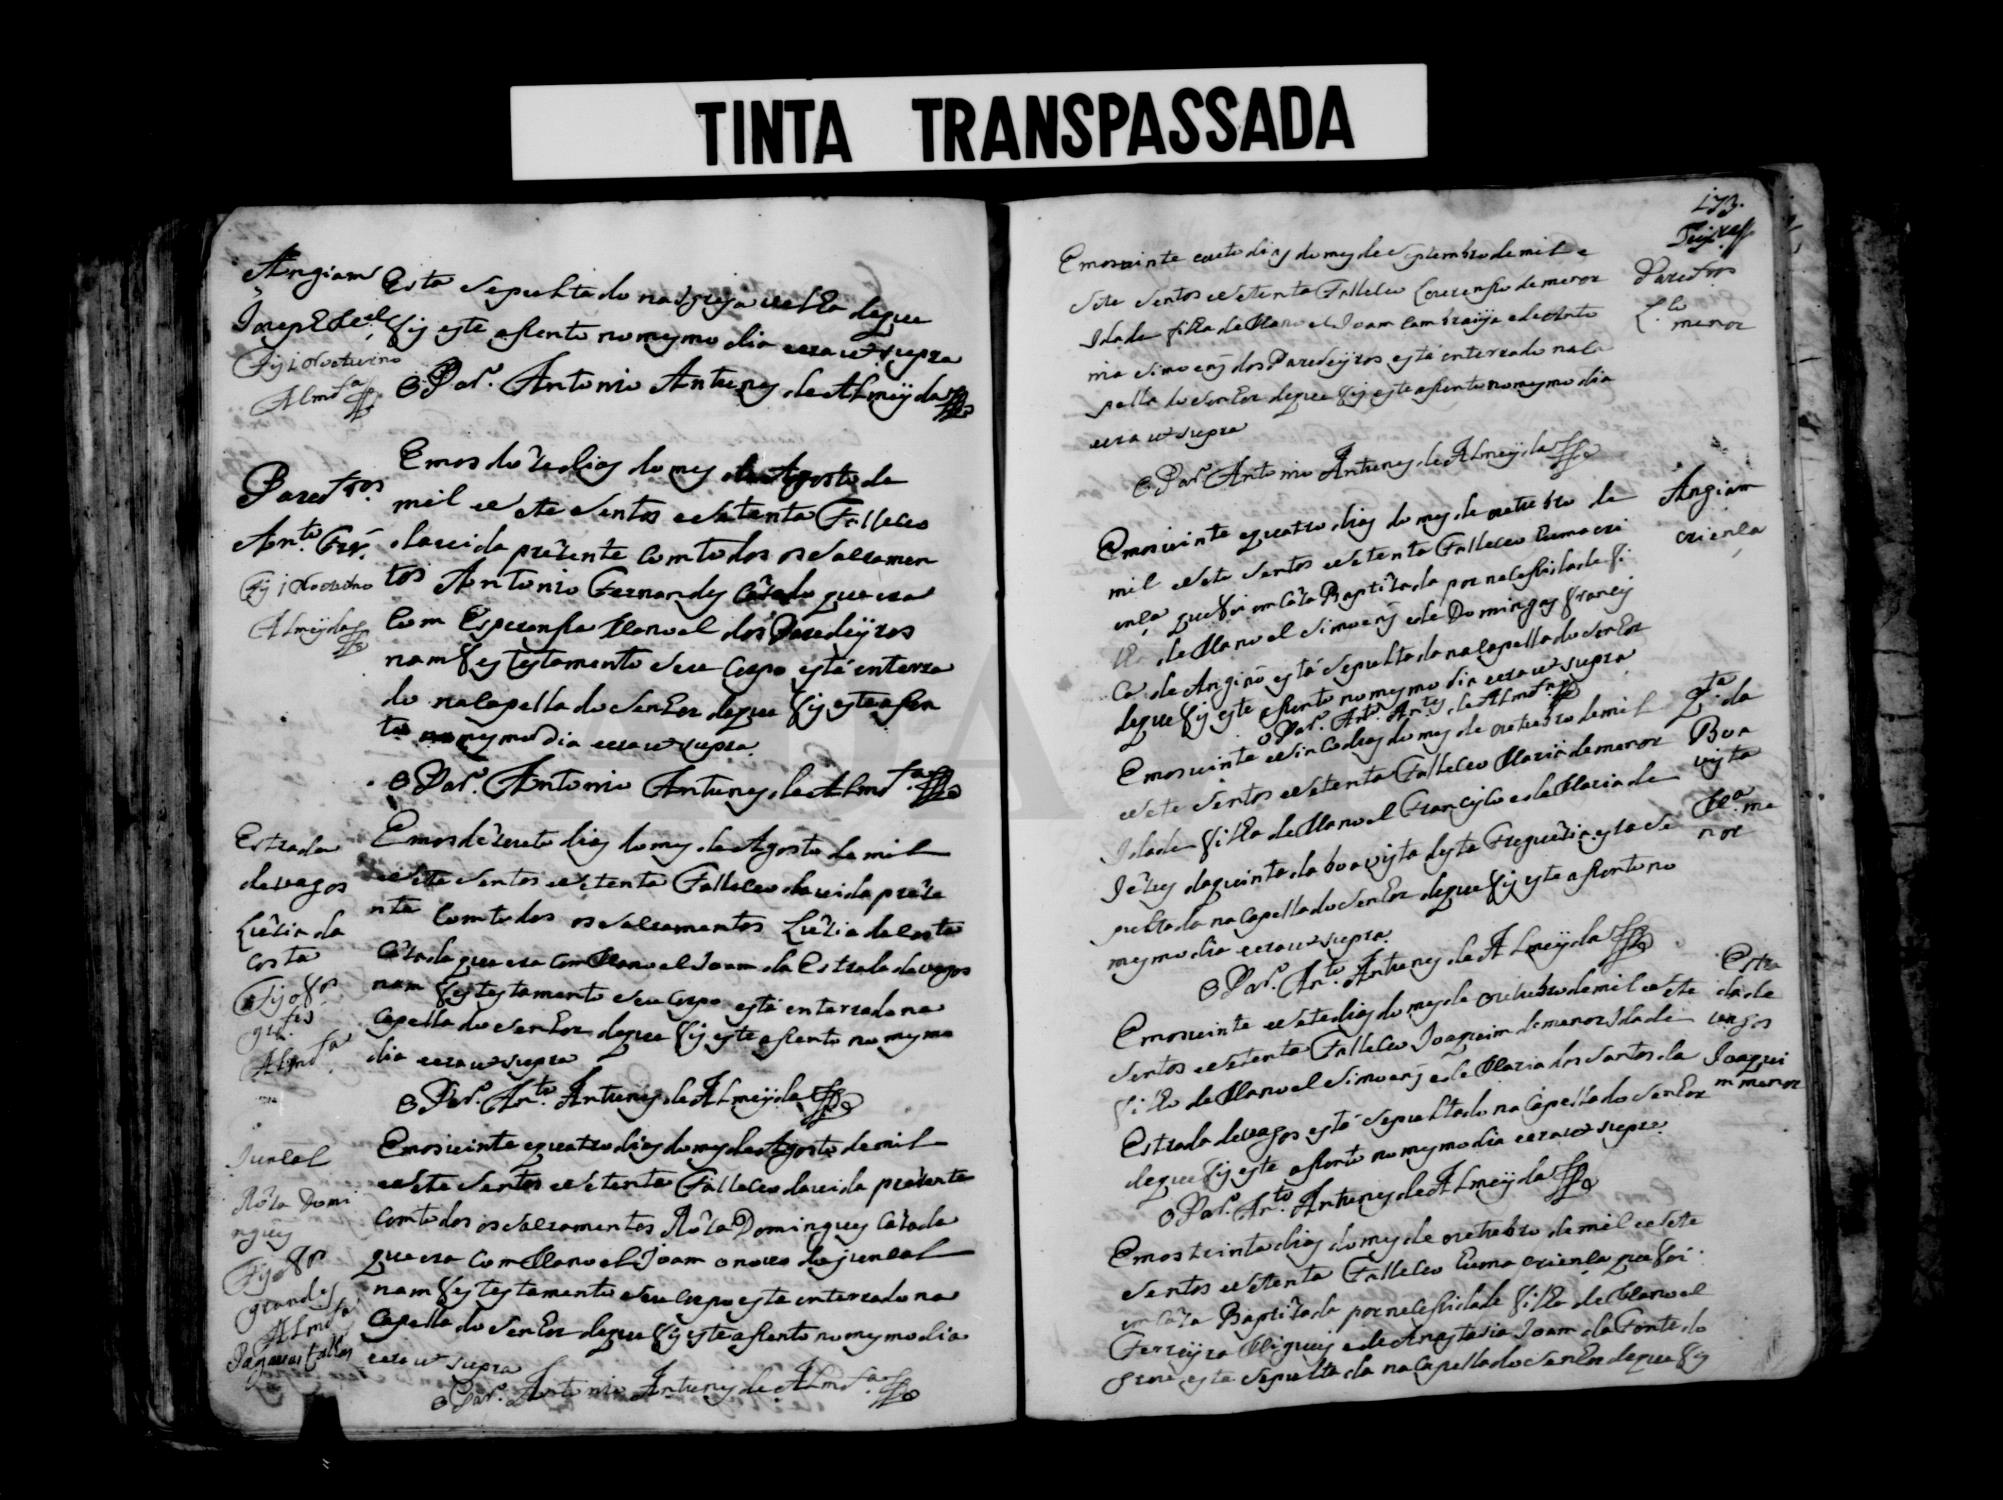 TINTA TRANSPASSADA
Angiam
Josep Leal
Fiz 1 Nocturno
Almda
Esta Sepultado na Igreja velha de que
fiz este asento no mesmo dia era ut supra
O Par. Antonio Antunes de Almeyda
Paredros
Anto. Frz.
Fiz 1 Nocturno
Almeyda
Em os doze dias do mes de Agosto de
mil e sete sentos e setenta Falleceo
da vida prezente com todos os sacramen
tos Antonio Fernandes cazado que era
com Esperansa Manoel dos Paredeyros
nam fes testamento seu corpo está enterra
do na capella do Senhor de que fiz este asen
to no mesmo dia era ut supra
O Par. Antonio Antunes de Almda
Estrada
de vagos
Luzia da
Costa
Fiz of.
Almda
Em os dezouto dias do mes de Agosto de mil
e sete sentos e setenta Falleceo da vida preze
nte com todos os sacramentos Luzia da Costa
cazada que era com Manoel Joam da Estrada de vagos
nam fes testamento seu corpo está enterrado na
capella do Senhor de que fiz este asento no mesmo
dia era ut supra
O Par. Anto. Antunes de Almeyda
Juncal
Roza Domi
ngues
Fiz of.
grandes
Almda
Em os vinte e quatro dias do mes de Agosto de mil
e sete sentos e setenta Falleceo da vida prezente
com todos os sacramentos Roza Domingues cazada
que era com Manoel Joam o novo do juncal
nam fes testamento seu corpo esta enterrado na
capella do Senhor de que fiz este asento no mesmo dia
era ut supra
O Par. Antonio Antunes de Almda
173.
Em os vinte e outo dias do mes de Septembro de mil e
sete sentos e setenta Falleceo Lourenso de menor
Idade filho de Manoel Joam Cambraya e de Anto
nia Simoens dos Paredeyros está enterrado na Ca
pella do Senhor de que fiz este asento no mesmo dia
era ut supra
O Par. Antonio Antunes de Almeyda
Paredros
L.co
menor
Em os vinte e quatro dias do mes de outubro de
mil e sete sentos e setenta Falleceo huma cri
ansa que foi em caza Baptizada por necessidade fi
lha de Manoel Simoens e de Domingas Francis
ca de Angião está sepultada na capella do Senhor
de que fiz este asento no mesmo dia era ut supra
O Par. Anto. Antes de Almda
Angiam
criensa
Em os vinte e sinco dias do mes de outubro de mil
e sete sentos e setenta Falleceo Maria de menor
Idade filha de Manoel Francisco e de Maria de
Jezus da quinta da boa vista desta Freguezia esta se
pultada na capella do Senhor de que fiz este asento no
mesmo dia era ut supra
O Par. Anto. Antunes de Almeyda
Qta da
Boa
vista
Ma. me
nor
Em os vinte e sete dias do mes de outubro de mil e sete
sentos e setenta Falleceo Joaquim de menor Idade
filho de Manoel Simoens e de Maria dos Santos da
Estrada de vagos está sepultado na capella do Senhor
de que fiz este asento no mesmo dia era ut supra
O Par. Anto. Antunes de Almeyda
Estra
da de
vagos
Joaqui
m menor
Em os trinta dias do mes de outubro de mil e sete
sentos e setenta Falleceo huma criensa que foi
em caza Baptizada por necessidade filha de Manoel
Ferreyra Migueis e de Anastasia Joam da Fonte do
grou esta sepultada na capella do Senhor de que fiz